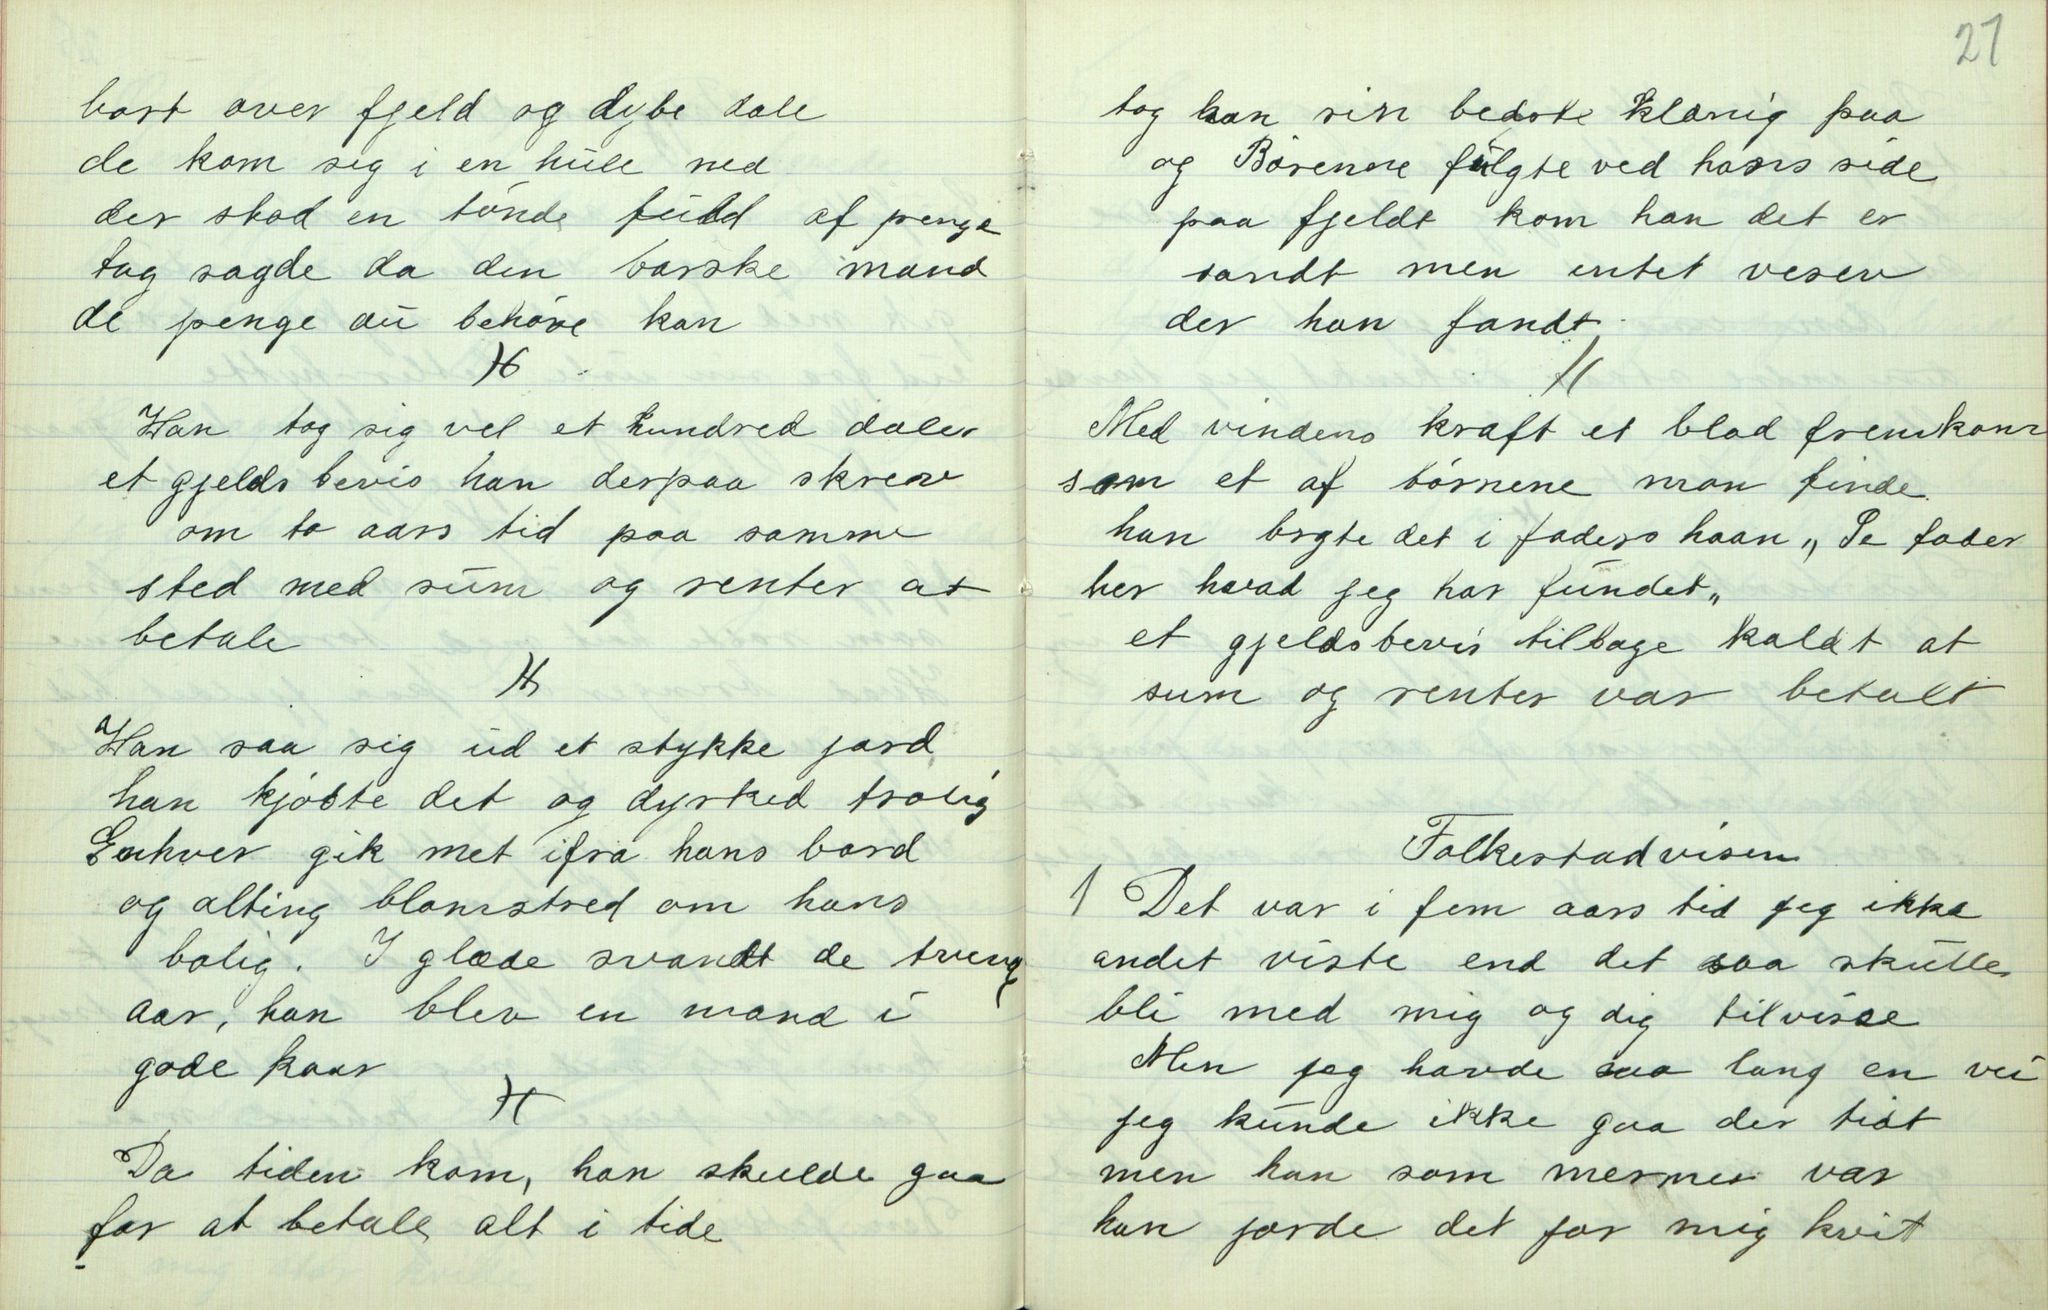 bort over fjeld og dybe dale
de kom sig i en hule ned
der stod en tönde fuld af penge
tag sagde da den barske mand
de penge du behöve kan
Han tog sig vel et hundred daler
et gjelds bevis han derpaa skrev
om to aars tid paa samme
sted med sum og renter at
betale
Han saa sig ud et stykke jord
han kjöbte det og dyrked trolig
Enhver gik met ifra hans bord
og alting blomstred om hans
bolig. I glæde svandt de tvenge
aar, han blev en mand i
gode kaar
Da tiden kom, han skulde gaa
for at betale alt i tide
27
tog han sin bedste klænig paa
og Börenne fulgte ved hans side
paa fjeldt kom han det er
sandt men intet vesen
der han fandt
Med vindens kraft et blad fremkom
som et af börnene mon finde
han bragte det i faders haan „Se fader
her hvad jeg har fundet„
et gjeldsbevis tilbage kaldt at
sum og renter var betalt
Folkestadvisen
1 Det var i fem aars tid jeg ikke
andet viste end det saa skulle
bli med mig og dig tilvisse
Men jeg havde saa lang en vei
jeg kunde ikke gaa der tidt
men han som nermer var
han jorde det for mig kvit